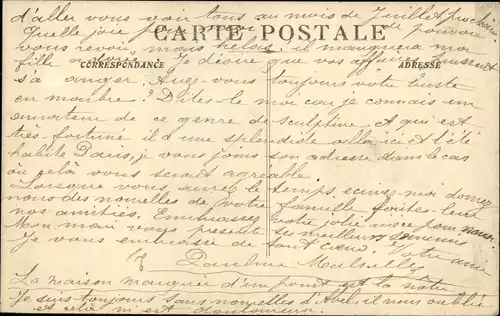 d'aller vous voir tous au mois de Juillet prochain
Quelle joie pour de pouvoir
vous revoir, mais helas, il manquera ma
CARTE POSTALE
fille Je désire que vos affaires puissent
CORRESPONDANCE
ADRESSE
s'arranger. Avez-vous toujours votre buste
en marbre? Dites-le moi car je connais un
amateur de ce genre de sculpture et qui est
très-fortuné il a une splendide villa ici et l'été
habite Paris, je vous son adresse dans le cas
où celà vous serait agréable.
Lorsque vous aurez le temps ecrivez-moi donnez
nous des nouvelles de votre famille faites-leur
nos amitiés. Embrassez votre jolie mère pour nous.
Mon mari vous présente ses meilleurs
Je vous embrasse de tout cœur. Votre amie
Pauline
La maison marquée d'un point est la notre
Je suis toujours sans nouvelles d'Abel, il nous oublie
et celà m'est douloureux.